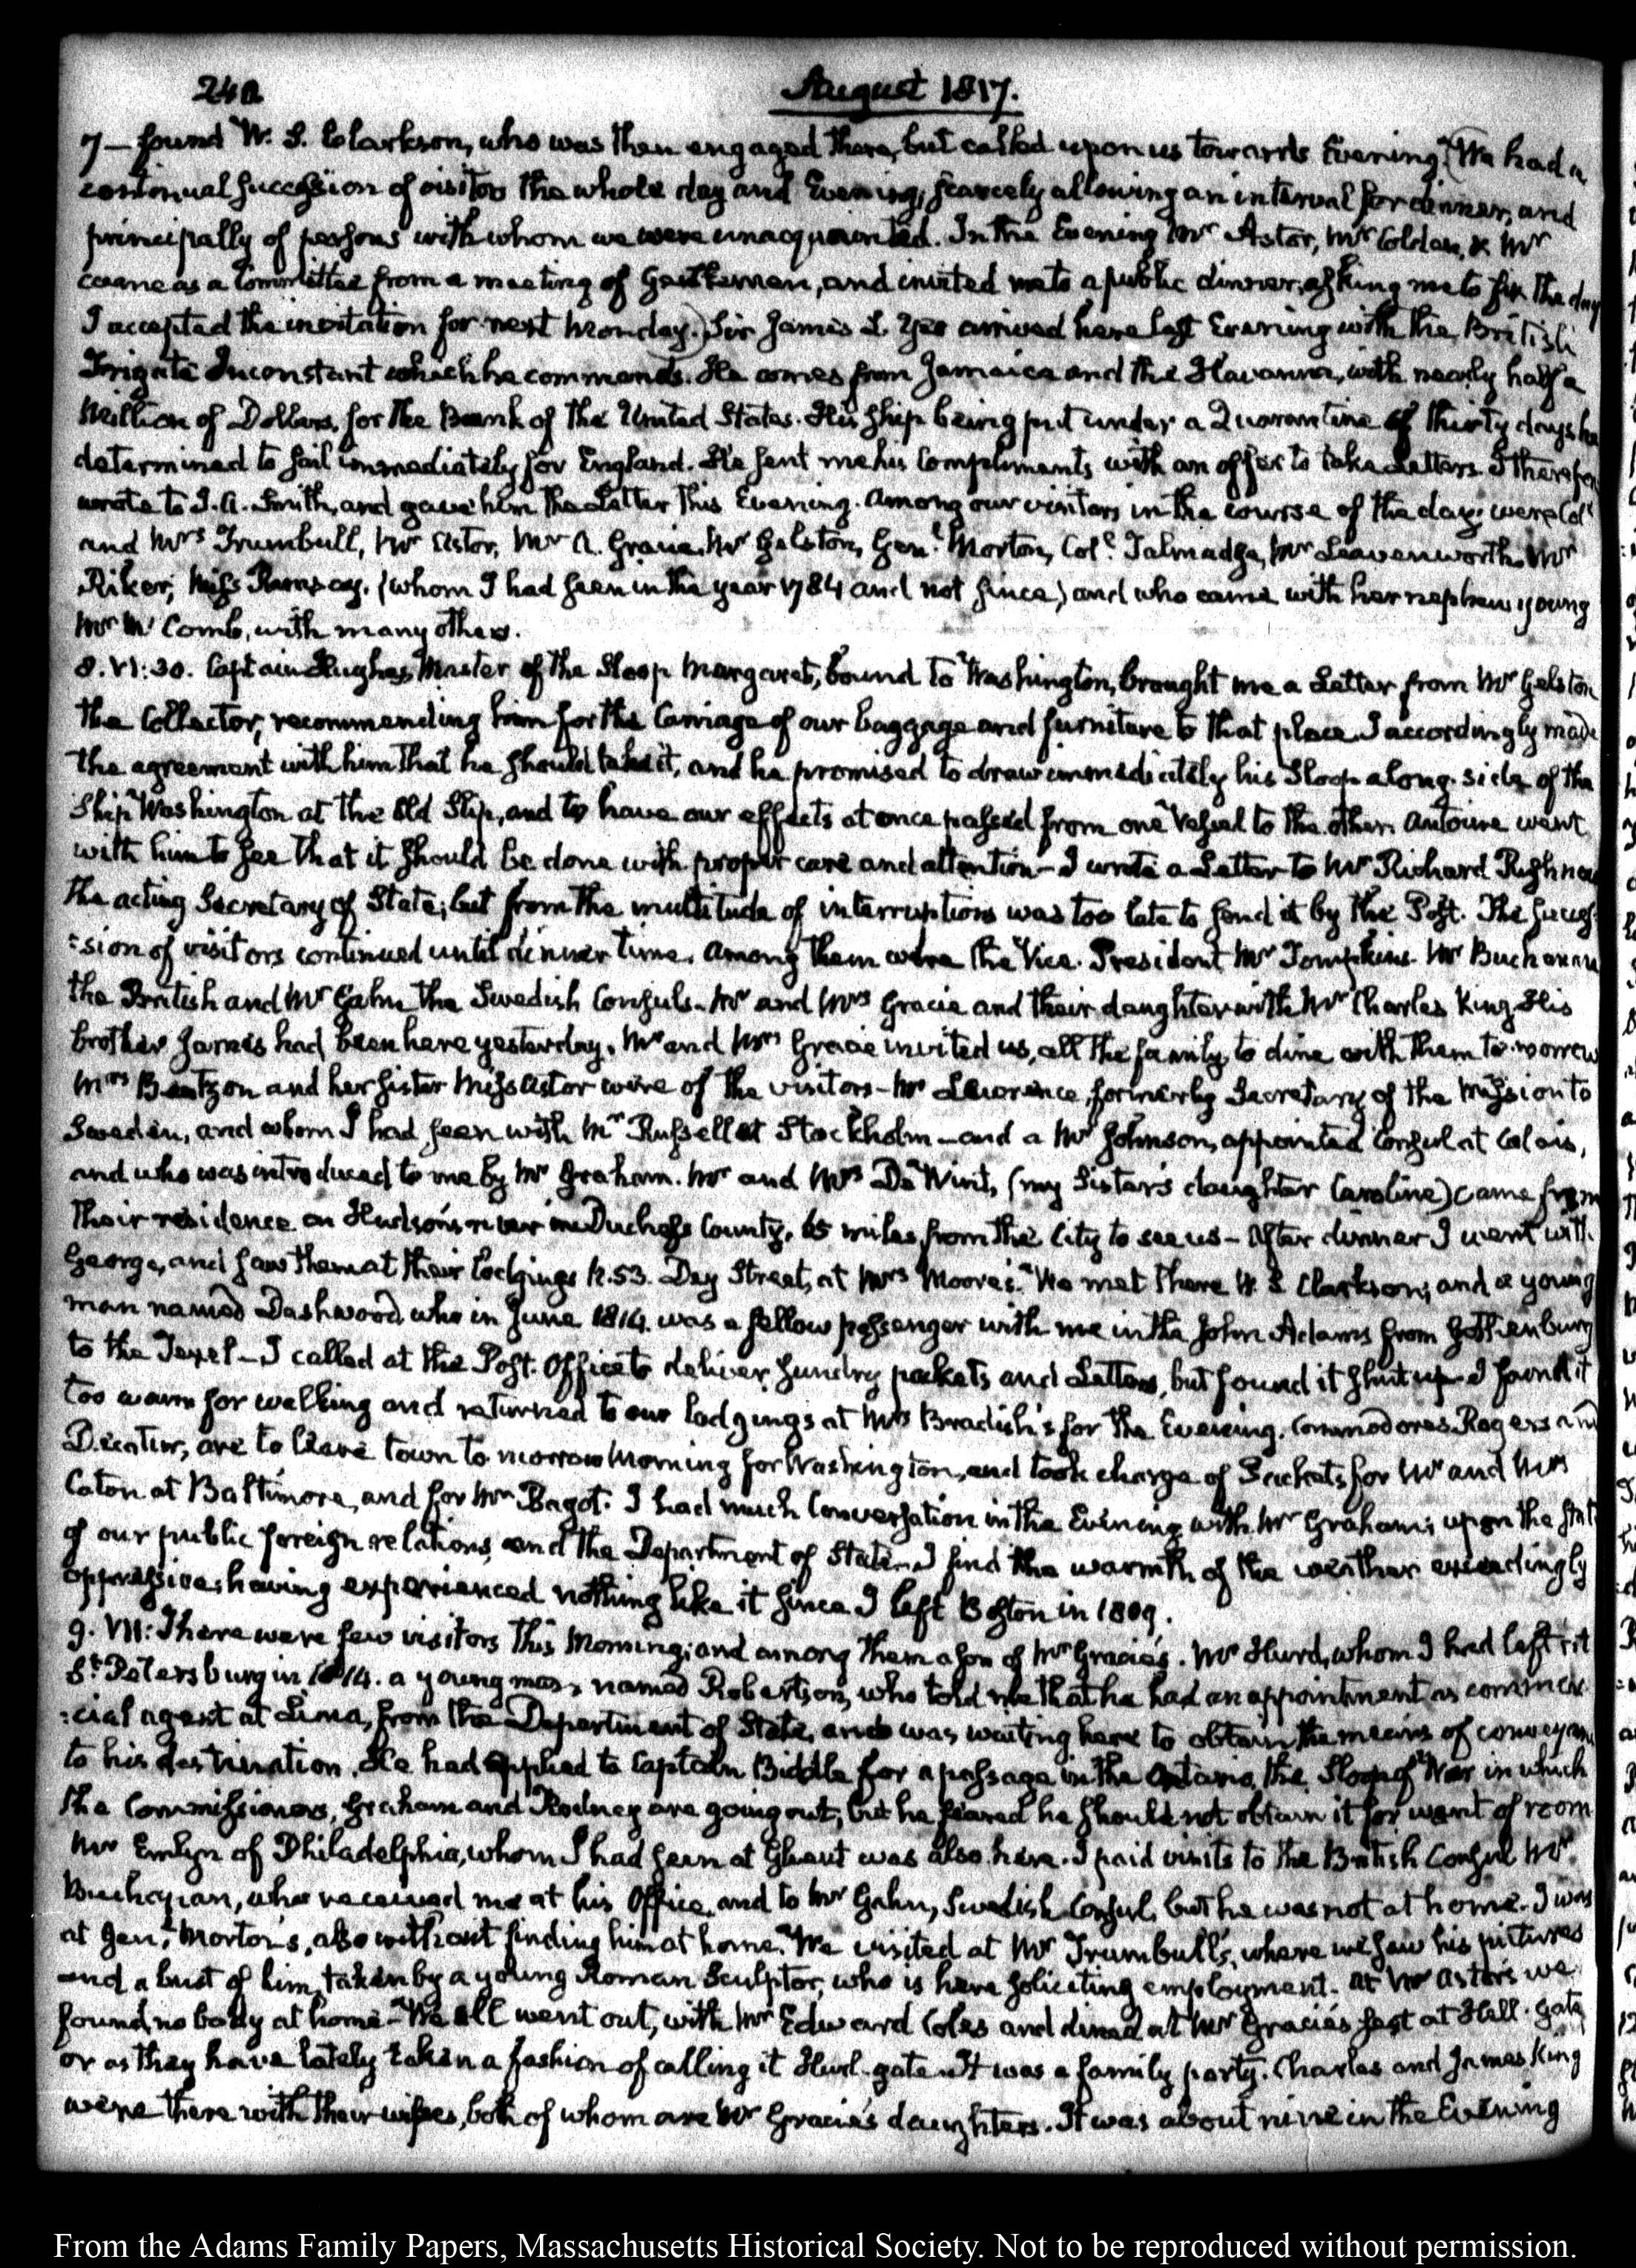 240
August 1817.
7 — found W. S. Clarkson, who was then engaged there, but called upon us towards Evening. (We had a
continual succession of visitors the whole day and Evening, scarcely allowing an interval for dinner, and
principally of persons with whom we were unacquainted. In the Evening Mr Astor, Mr Colden, & Mr
came as a Committee from a meeting of Gentlemen, and invited me to a public dinner; asking me to fix the day
I accepted the invitation for next Monday.) Sir James L. Yeo arrived here last Evening with the British
Frigate Inconstant which he commands. He comes from Jamaica and the Havanna, with nearly half a
Million of Dollars, for the Bank of the United States. His ship being put under a Quarantine of thirty days he
determined to sail immediately for England. He sent me his Compliments with an offer to take Letters. I therefore
wrote to J. A. Smith, and gave him the Letter this Evening. Among our visitors in the course of the day, were Col.
and Mrs Trumbull, Mr Astor, Mr A. Gracie, Mr Gelston, Genl. Morton, Coll. Talmadge, Mr Leavenworth, Mr
Riker, Miss Ramsay, (whom I had seen in the year 1784 and not since) and who came with her nephew young
Mr Mc Comb, with many others.
8. VI:30. Captain Hughes, Master of the Sloop Margaret, bound to Washington, brought me a Letter from Mr Gelston
the Collector, recommending him for the Carriage of our baggage and furniture to that place. I accordingly made
the agreement with him that he should take it, and he promised to draw immediately his Sloop along-side of the
Ship Washington at the Old Slip, and to have our effects at once passed from one Vessel to the other. Antoine went
with him to see that it should be done with proper care and attention — I wrote a Letter to Mr Richard Rush now
the acting Secretary of State; but from the multitude of interruptions was too late to send it by the Post. The succes-
:sion of visitors continued until dinner time. Among them were the Vice-President Mr Tompkins. Mr Buchanan
the British and Mr Gahn the Swedish Consuls. Mr and Mrs Gracie and their daughter with Mr Charles King. His
brother James had been here yesterday. Mr and Mrs Gracie invited us, all the family, to dine with them to-morrow
Mrs Bentzon and her Sister Miss Astor were of the visitors — Mr Lawrence, formerly Secretary of the Mission to
Sweden, and whom I had seen with Mr Russell at Stockholm — and a Mr Johnson, appointed Consul at Calais,
and who was introduced to me by Mr Graham. Mr and Mrs De Wint, (my Sister's daughter Caroline) came from
their residence on Hudson's river in Duchess County, 65 miles from the City to see us — After dinner I went with
George, and saw them at their lodgings N. 53. Dey Street, at Mrs Moore's. We met there W. S. Clarkson; and a young
man named Dashwood, who in June 1814. was a fellow passenger with me in the John Adams from Gothenburg
to the Texel — I called at the Post-Office to deliver sundry packets and Letters, but found it shut up — I found it
too warm for walking and returned to our lodgings at Mrs Bradish's for the Evening. Commodores Rogers and
Decatur, are to leave town to morrow Morning for Washington, and took charge of Packets for Mr and Mrs
Caton at Baltimore, and for Mr Bagot. I had much Conversation in the Evening with Mr Graham; upon the state
of our public foreign relations, and the Department of State — I find the warmth of the weather exceedingly
oppressive; having experienced nothing like it since I left Boston in 1809.
9. VII: There were few visitors this Morning; and among them a son of Mr Gracie's. Mr Hurd, whom I had left at
St. Petersburg in 1814. a young man, named Robertson, who told me that he had an appointment as commer-
:cial agent at Lima, from the Department of State, and was waiting here to obtain the means of conveyance
to his destination. He had applied to Captain Biddle for a passage in the Ontario, the Sloop of War in which
the Commissioners, Graham and Rodney are going out; but he feared he should not obtain it for want of room
Mr Emlyn of Philadelphia, whom I had seen at Ghent was also here. I paid visits to the British Consul Mr
Buchanan, who received me at his Office, and to Mr Gahn, Swedish Consul, but he was not at home. I was
at Genl. Morton's, also without finding him at home. We visited at Mr Trumbull's, where we saw his pictures
and a bust of him, taken by a young Roman Sculptor, who is here soliciting employment. At Mr Astor's we
found no body at home — We all went out, with Mr Edward Coles and dined at Mr Gracie's seat at Hell-gate
or as they have lately taken a fashion of calling it Hurl-gate. It was a family party. Charles and James King
were there with their wives, both of whom are Mr Gracie's daughters. It was about nine in the Evening
From the Adams Family Papers, Massachusetts Historical Society. Not to be reproduced without permission.